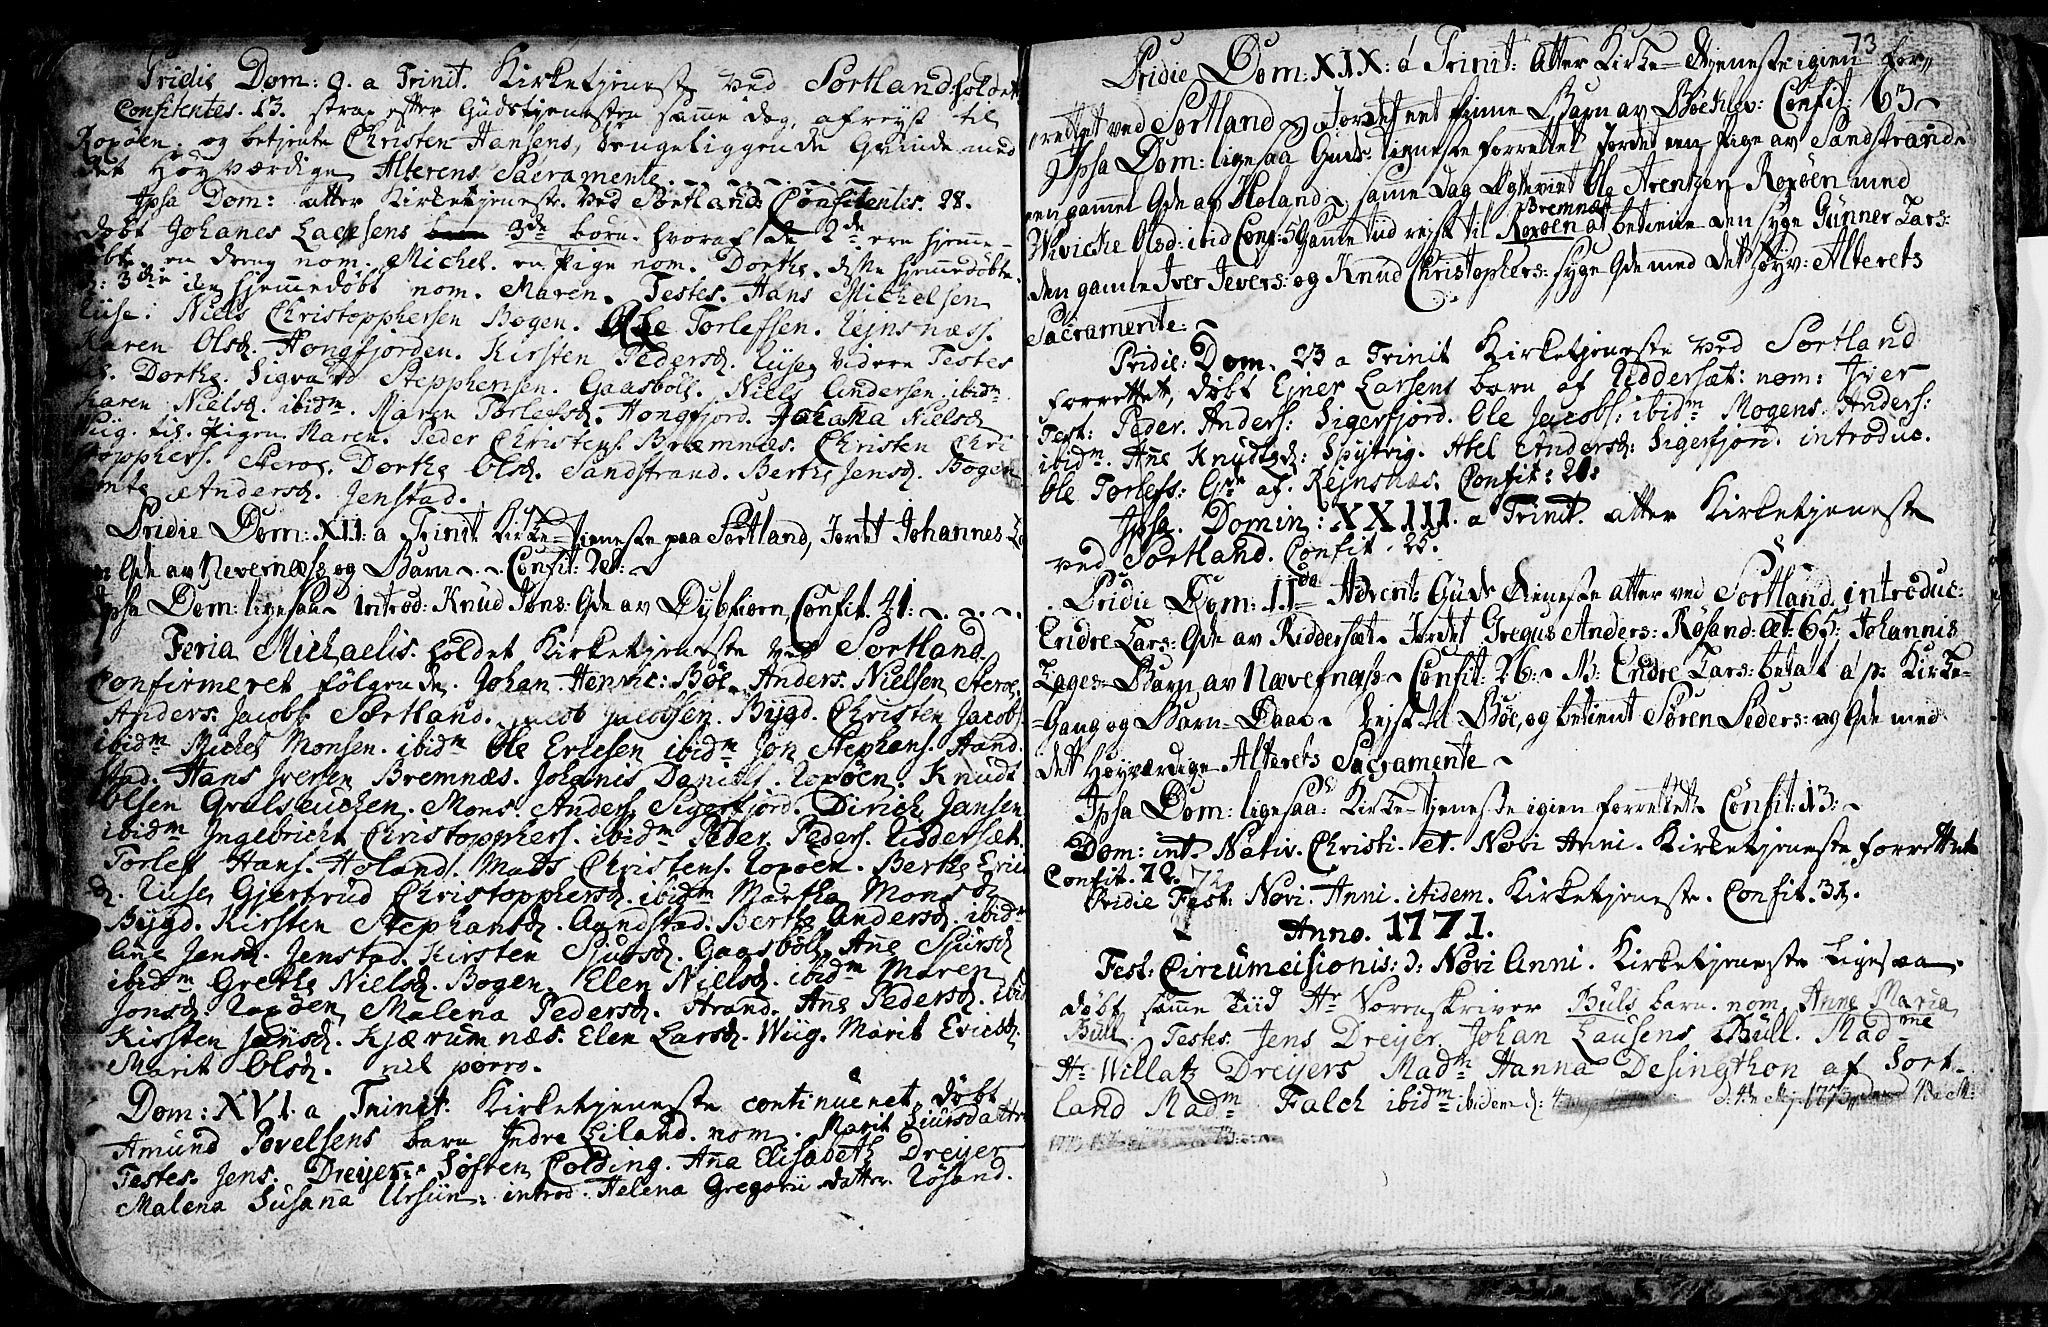 Pridie Dom: 9. a Trinit. Kirketjeneste ved Sortland holdet
Confitentes. 13. strax efter Gudstjenesten samme dag, afreyst til
Roxøen. og betjente Christen Hansens, Sengeliggende Qvinde med
det Høyværdige Alterens Sacramente.
Ipsa Dom: atter Kirketjeneste ved Sortland Confitentes. 28.
døbt Johanes Lagesens 3de børn. hvoraf de 2de ere hjemme-
døbte en dreng nom. Michel. en Pige nom. Dorthe. disse hjemmedøbte.
3die icke hjemmedøbt nom. Maren. Testes. Hans Michelsen
Liise: Niels Christophersen Bogen. Ole Torlefsen. Rejnsnæss.
Karen Olsd. Hongfjorden. Kirsten Pedersd. Liise videre Testes
Dorthe. Sigvard Stepphensen. Gaasbøll. Niels Andersen ibidm
Karen Nielsd. ibidm. Maren Torlefsd. Hongfjord. Nielsd
Wiig. til Pigen Maren. Peder Christens. Bræmnæs. Christen Chri
stopphers. Steroe. Dorthe Olsd. Sandstrand. Berthe Jensd. Bogen
Andersd. Jenstad.
Pridie Dom: XII: a Trinit. Kirke-tieneste paa Sortland, Jordet Johannes
Qde av Nevernæss og Barn. Confit: 28:
Ipsa Dom: ligesaa Introd: Knud Jons: Qde av Dybfiorn, Confit. 41:
Feria Michaelis. holdet Kirketjeneste ved Sortland
Confirmeret følgende. Johan Henric: Bøe. Anders. Nielsen Steroe.
Anders. Jacobs. Sortland. Jacob Jacobsen. Bÿgd. Christen Jacobs.
ibidm Michel Monsen. ibidm Ole Ericsen ibidm Jon Stephans. Aand.
stad. Hans Iversen Bremnæs. Johanis Daniels. Roxøen. Knudt
Olsen Mons. Anders. Sigerfjord. Dirich Jansen
ibidm Ingebricht Christopphers. ibidm Peder Peders. Riddersæt.
Torlef Hans. Holand. Mads Christens. Roxøen. Berthe Eric
d. Liise Gjertrud Christopphersd. ibidm Martha Monsd
Bÿgd. Kirsten Stephansd. Aandstad. Berthe Andersd. ibidm
Ane Jensd. Jenstad. Kirsten Sjursd. Gaasbøll. Ane Sjursd
ibidm Grethe Nielsd. Bogen. Elen Nielsd. ibidm Maren
Jonsd. Roxøen, Malena Pedersd. Strand. Ane Pedersd. ibid
Kirsten Jensd. Kjærumnæs. Elen Larsd. Wiig. Marit Ericsd.
Marit Olsd. nil porro.
Dom: XVI. a Trinit: Kirketjeneste continueret, døbt
Amund Povelsens barn Indre Eiland. nom. Marit Siursdatter
Testes. Jens. Dreÿer. Søfren Colding. Ana Elisabeth Dreÿer
Malena Susana Ursiin: introd. Helena Gregorii datter. Røsand.
73
Pridie Dom: XIX: á Trinit: Atter Kirke-Etjeneste igien for„
rettet ved Sortland Jordet eet Barn av Bøe Klev: Confit: 63
Ipsa Dom: ligesaa Guds-tieneste forrettet Jordet een Pige av Sandstrand
een gammel Qde av Holand samme Dag Egteviet Ole Arentzen Roxøen med
Wivicke Olsd: ibid Conf: 5 Samme tid rejst til Roxøen Bremnæs at betiene den syge Gunner Lars:
den gamle Iver Ivers: og Knud Christophers: syge Qde med det Høyv: Alterets
Sacramente:
Pridie: Dom. 23 a Trinit Kirketjeneste ved Sortland
forrettet, døbt Ejner Larsens barn af Riddersæt: nom: Iver
Test: Peder. Anders: Sigersfjord. Ole Jacobs: ibidm Mogens. Anders:
ibidm. Ane Knudtzd: Spÿtvig. Abel Andersd: Sigerfjord. introduc.
Ole Torlefs: Qde af. Rejnsnæs. Confit: 21:
Ipsa. Domin: XXIII. a Trinit. atter Kirketjeneste
ved Sortland. Confit. 25.
Pridie Dom: IIda Advent: Guds tieneste atter ved Sortland, introduc:
Eridre Lars: Qde av Riddersæt. Jordet Gregus Anders: Røsand: Æt: 65: Johannis
Lages: Barn av Nævernæss Confit: 26: NB: Endre Lars: betalt a p: Kirke-
=Gang og Barn-Daab. Rejst til Bøe, og betient Søren Peders: og Qde med
det Høyværdige Alterets Sacramente
Ipsa Dom: ligesaa: Kirke-tjeneste igien forrettet Confit: 13:
Dom: int. Nativ. Christi. et. Novi Anni. Kirketjeneste forrettet
Confit. 72. 72
Pridie Fest: Novi. Anni. itidem. Kirketjeneste. Confit. 31.
Anno. 1771.
Fest: Circumcisionis: ɔ: Novi Anni. Kirketjeneste Ligesaa
døbt samme Tiid Hr Sorenskriver Buls barn. nom. Anne Maria
Bull. Testes. Jens Dreÿer. Johan Lausens Bull. Madme
Hr Willatz Dreÿers Madm Hanna Desingthon af Sort-
land Madm Falch ibidm ibidem